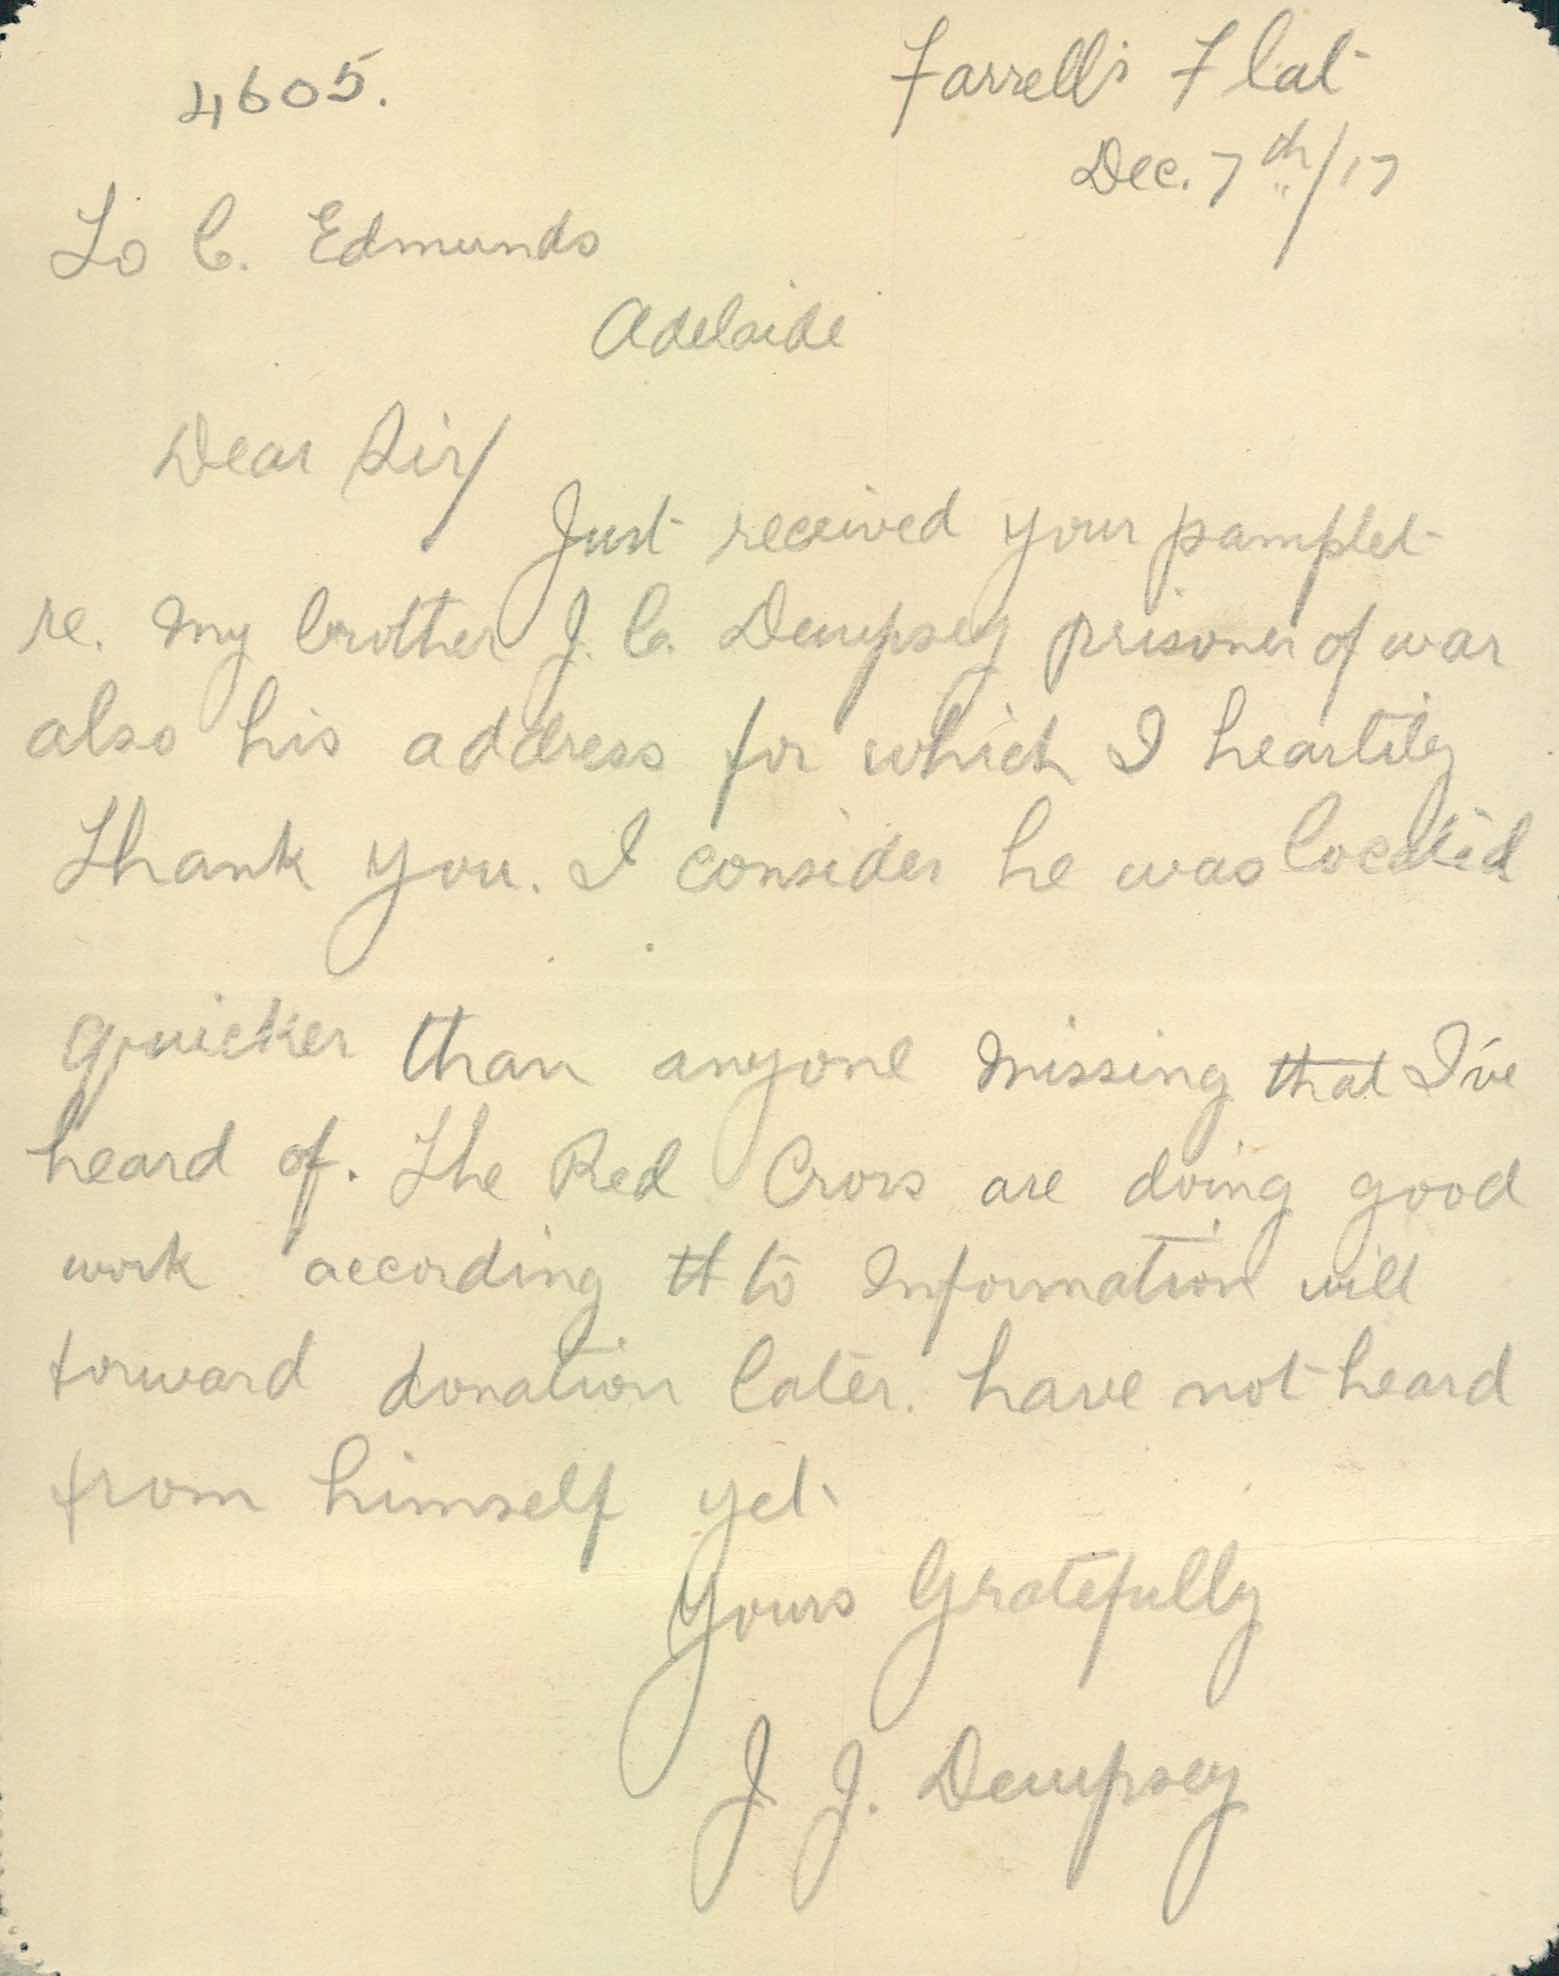 4605.
Farrell's Flat
Dec. 7th/17
To C. Edmunds
Adelaide
Dear Sir/
Just received your pamplet
re. my brother J. C. Dempsey prisoner of war
also his address for which I heartily
thank you. I consider he was located
quicker than anyone missing that I've
heard of. The Red Cross are doing good
work according tt to information will
forward donation later. have not heard
from himself yet
Yours Gratefully
J J. Dempsey